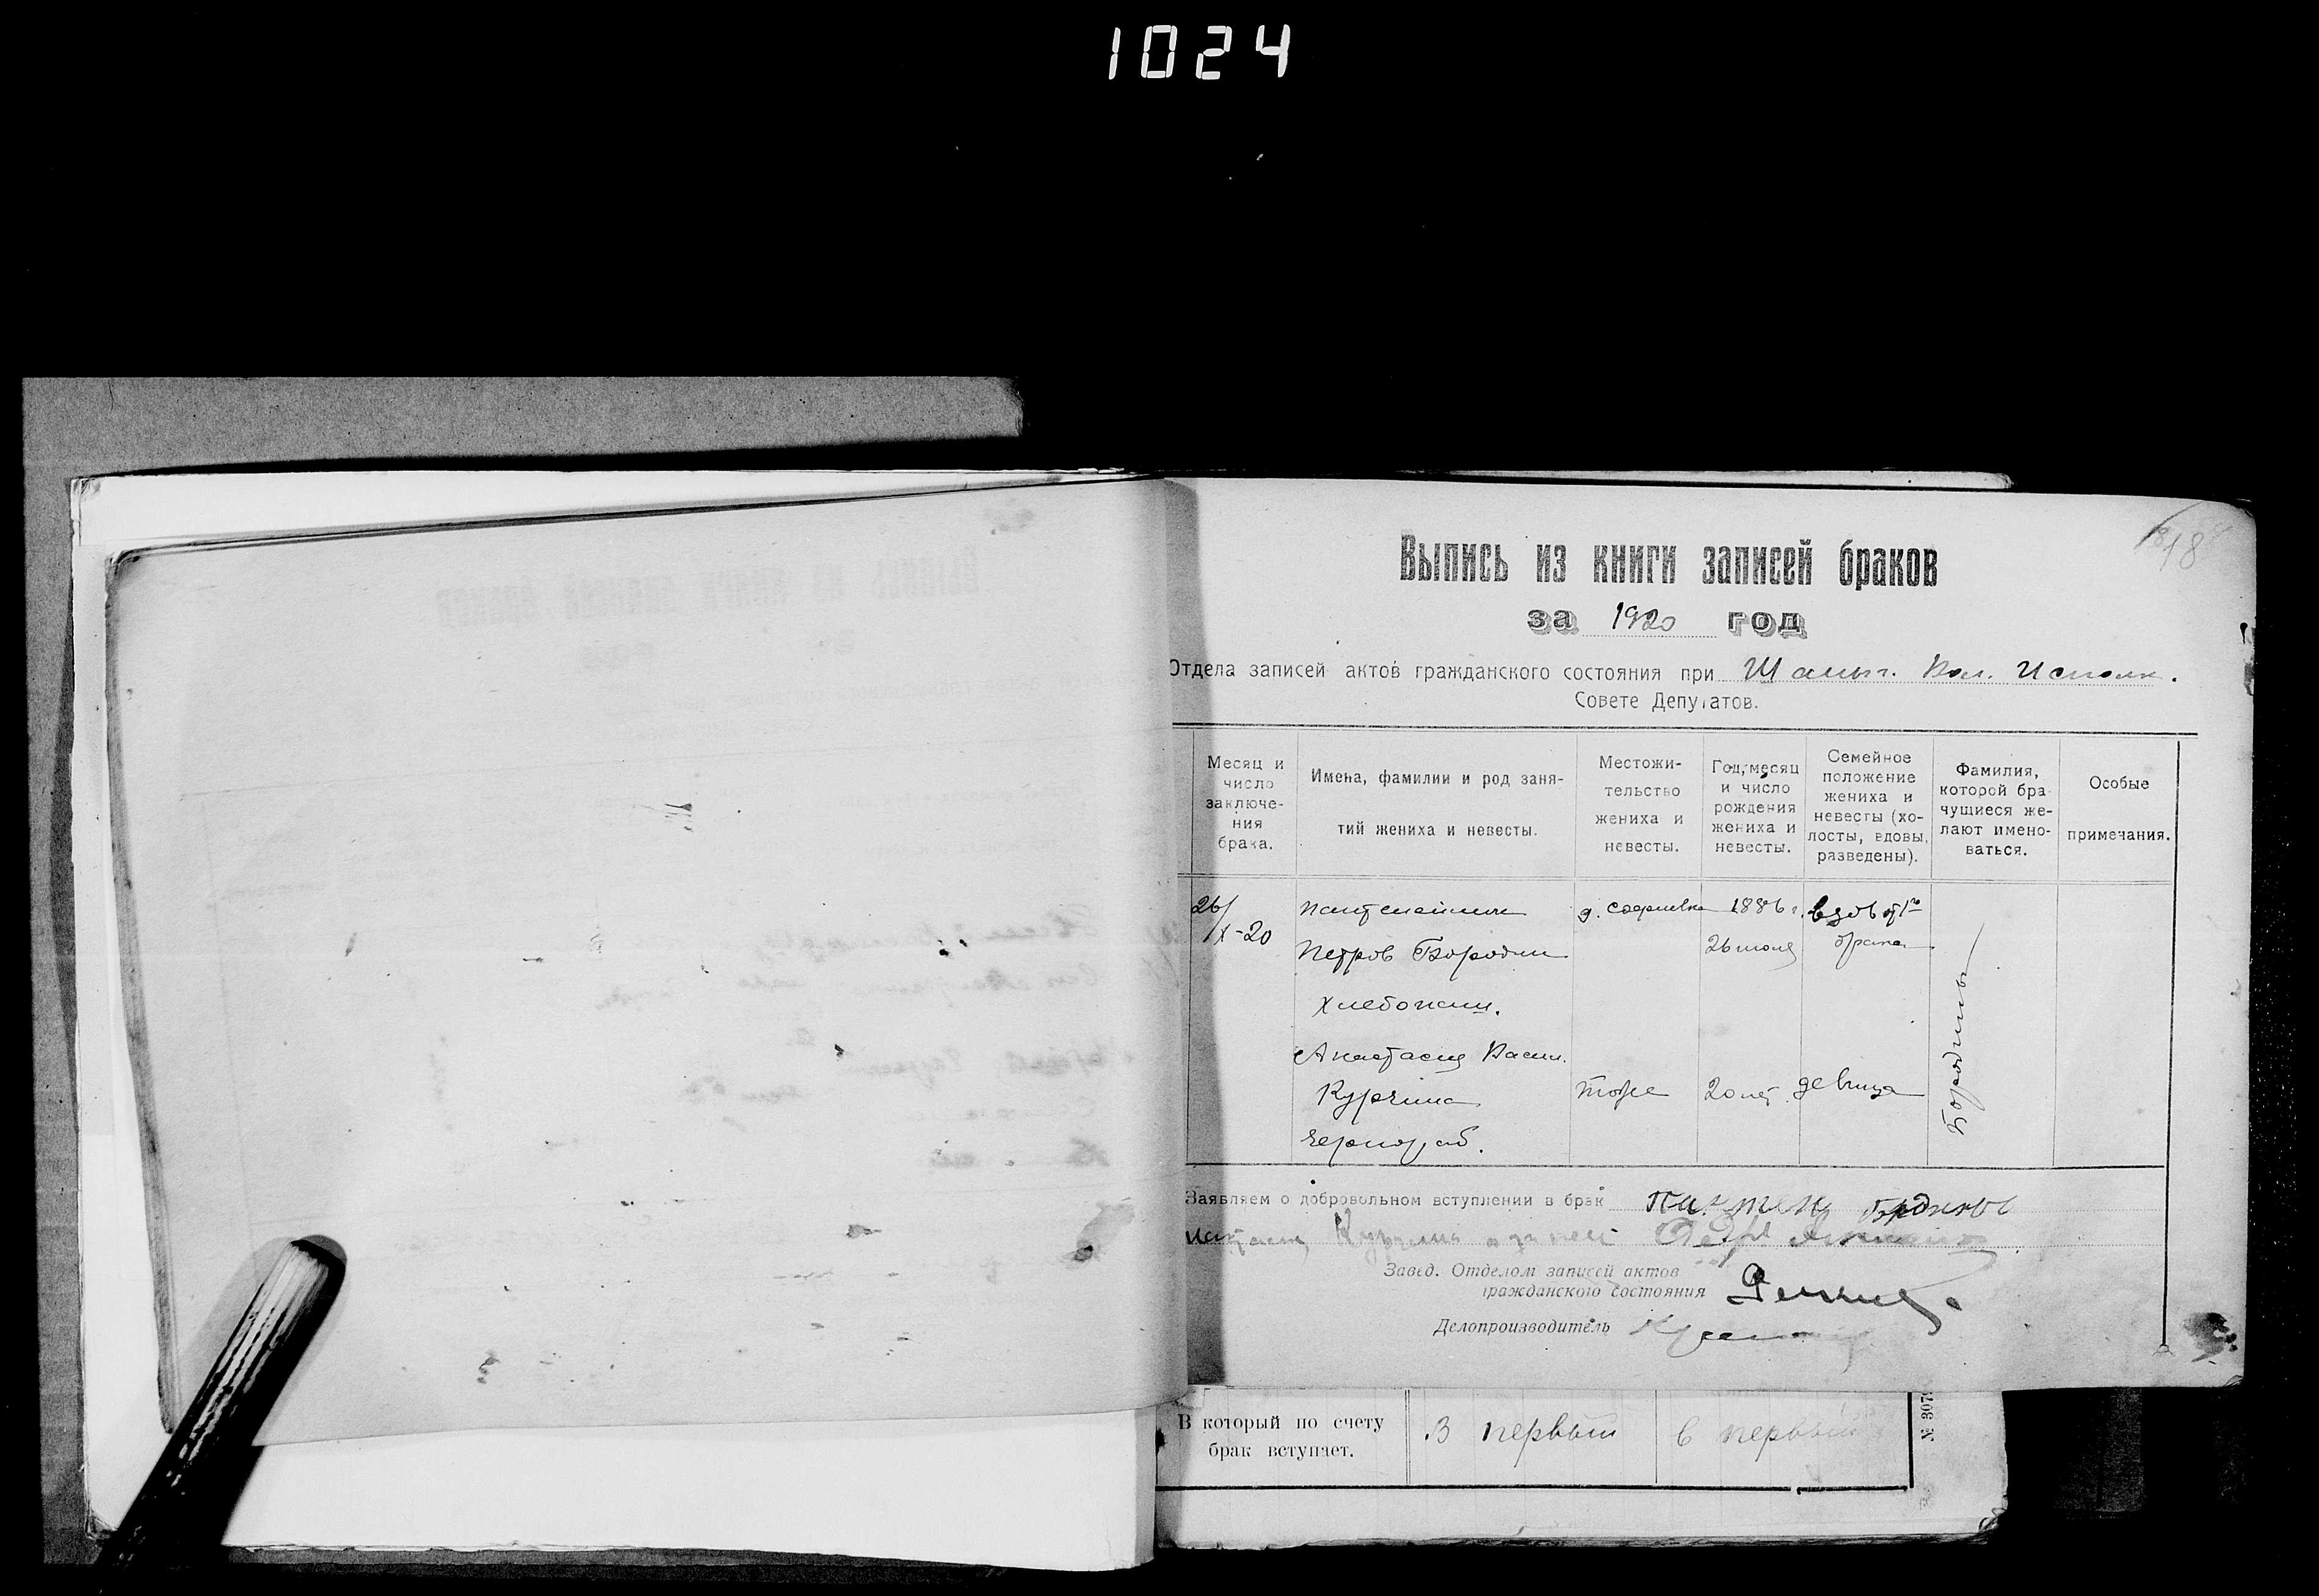 1024
18
Выпись из книги записей браков
за 1920 год
Отдела записей актов гражданского состояния при Шамыг. Вол. Исполк.
Совете Депутатов.
Месяц и число заключения брака.
Имена, фамилии и род занятий жениха и невесты.
Местожительство жениха и невесты.
Год, месяц и число рождения жениха и невесты.
Семейное положение жениха и невесты (холосты, вдовы, разведены).
Фамилия, которой брачущиеся желают именоваться.
Особые примечания.
26/X-20
Пантелеймон
д.
1886 г.
вдов от 1го
Петров Бородин
26 июля
брака
Хлебопаш.
Бородины
Анастасия Васил.
Курчина
тоже
20 лет
девица
чернораб.
Заявляем о добровольном вступлении в брак
Завед. Отделом записей актов
гражданского состояния
Делопроизводитель
В который по счету
брак вступает.
В первый
в первый
№ 307